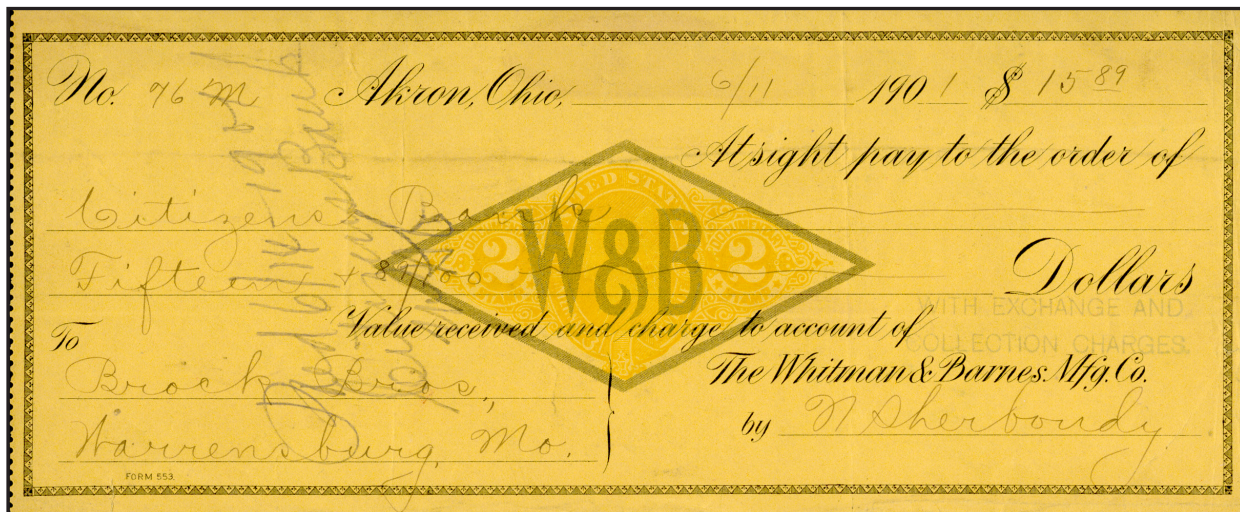 No. 76 M Akron, Ohio, 6/11 1901 $ 15 89
At sight pay to the order of
Citizens Bank
Fifteen + 89/100 Dollars
UNITED STATES
2 W&B 2
WITH EXCHANGE AND
COLLECTION CHARGES.
Value received and charge to account of
To
Brock Bros,
Warrensburg, Mo.
The Whitman & Barnes Mfg. Co.
by N Sherbondy
FORM 553.
Paid 6/14 1901